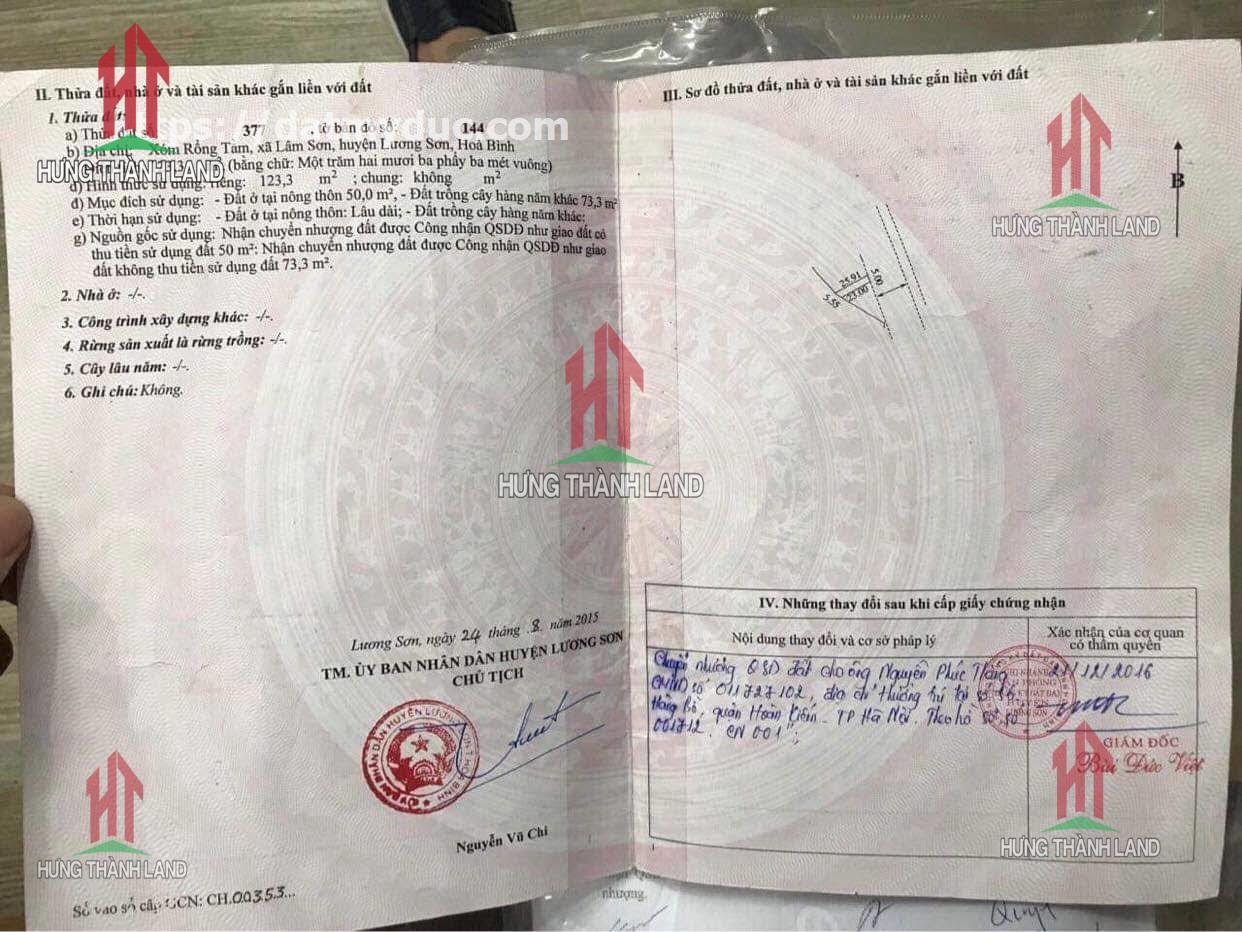 II. Thửa đất, nhà ở và tài sản khác gắn liền với đất
1. Thửa đất:
a) Thửa đất số: 377 , tờ bản đồ số: 144
https://datvuduc.com
b) Địa chỉ: Xóm Rồng Tằm, xã Lâm Sơn, huyện Lương Sơn, Hoà Bình
(bằng chữ: Một trăm hai mươi ba phẩy ba mét vuông)
d) Hình thức sử dụng: riêng: 123,3 m² ; chung: không m²
đ) Mục đích sử dụng: - Đất ở tại nông thôn 50,0 m², - Đất trồng cây hàng năm khác 73,3 m²
e) Thời hạn sử dụng: - Đất ở tại nông thôn: Lâu dài; - Đất trồng cây hàng năm khác:
g) Nguồn gốc sử dụng: Nhận chuyển nhượng đất được Công nhận QSDĐ như giao đất có
thu tiền sử dụng đất 50 m²: Nhận chuyển nhượng đất được Công nhận QSDĐ như giao
đất không thu tiền sử dụng đất 73,3 m².
2. Nhà ở: -/-.
3. Công trình xây dựng khác: -/-.
4. Rừng sản xuất là rừng trồng: -/-.
5. Cây lâu năm: -/-.
6. Ghi chú: Không.
Lương Sơn, ngày 24 tháng 8 năm 2015
TM. ỦY BAN NHÂN DÂN HUYỆN LƯƠNG SƠN
CHỦ TỊCH
Nguyễn Vũ Chi
Số vào sổ cấp GCN: CH.00353...
III. Sơ đồ thửa đất, nhà ở và tài sản khác gắn liền với đất
B
25.91
5.00
23.00
5.55
IV. Những thay đổi sau khi cấp giấy chứng nhận
Nội dung thay đổi và cơ sở pháp lý
Xác nhận của cơ quan
có thẩm quyền
Chuyển nhượng QSD đất cho ông Nguyễn Phúc Thắng
21/12/2016
CMND số 011727102, địa chỉ thường trú tại số 16
Hàng Bồ, quận Hoàn Kiếm - TP Hà Nội. Theo hồ sơ số
001712. CN 001";
GIÁM ĐỐC
Bùi Đức Việt
nhượng.
HT
HƯNG THÀNH LAND
HT
HƯNG THÀNH LAND
HT
HƯNG THÀNH LAND
HT
HƯNG THÀNH LAND
HT
HƯNG THÀNH LAND